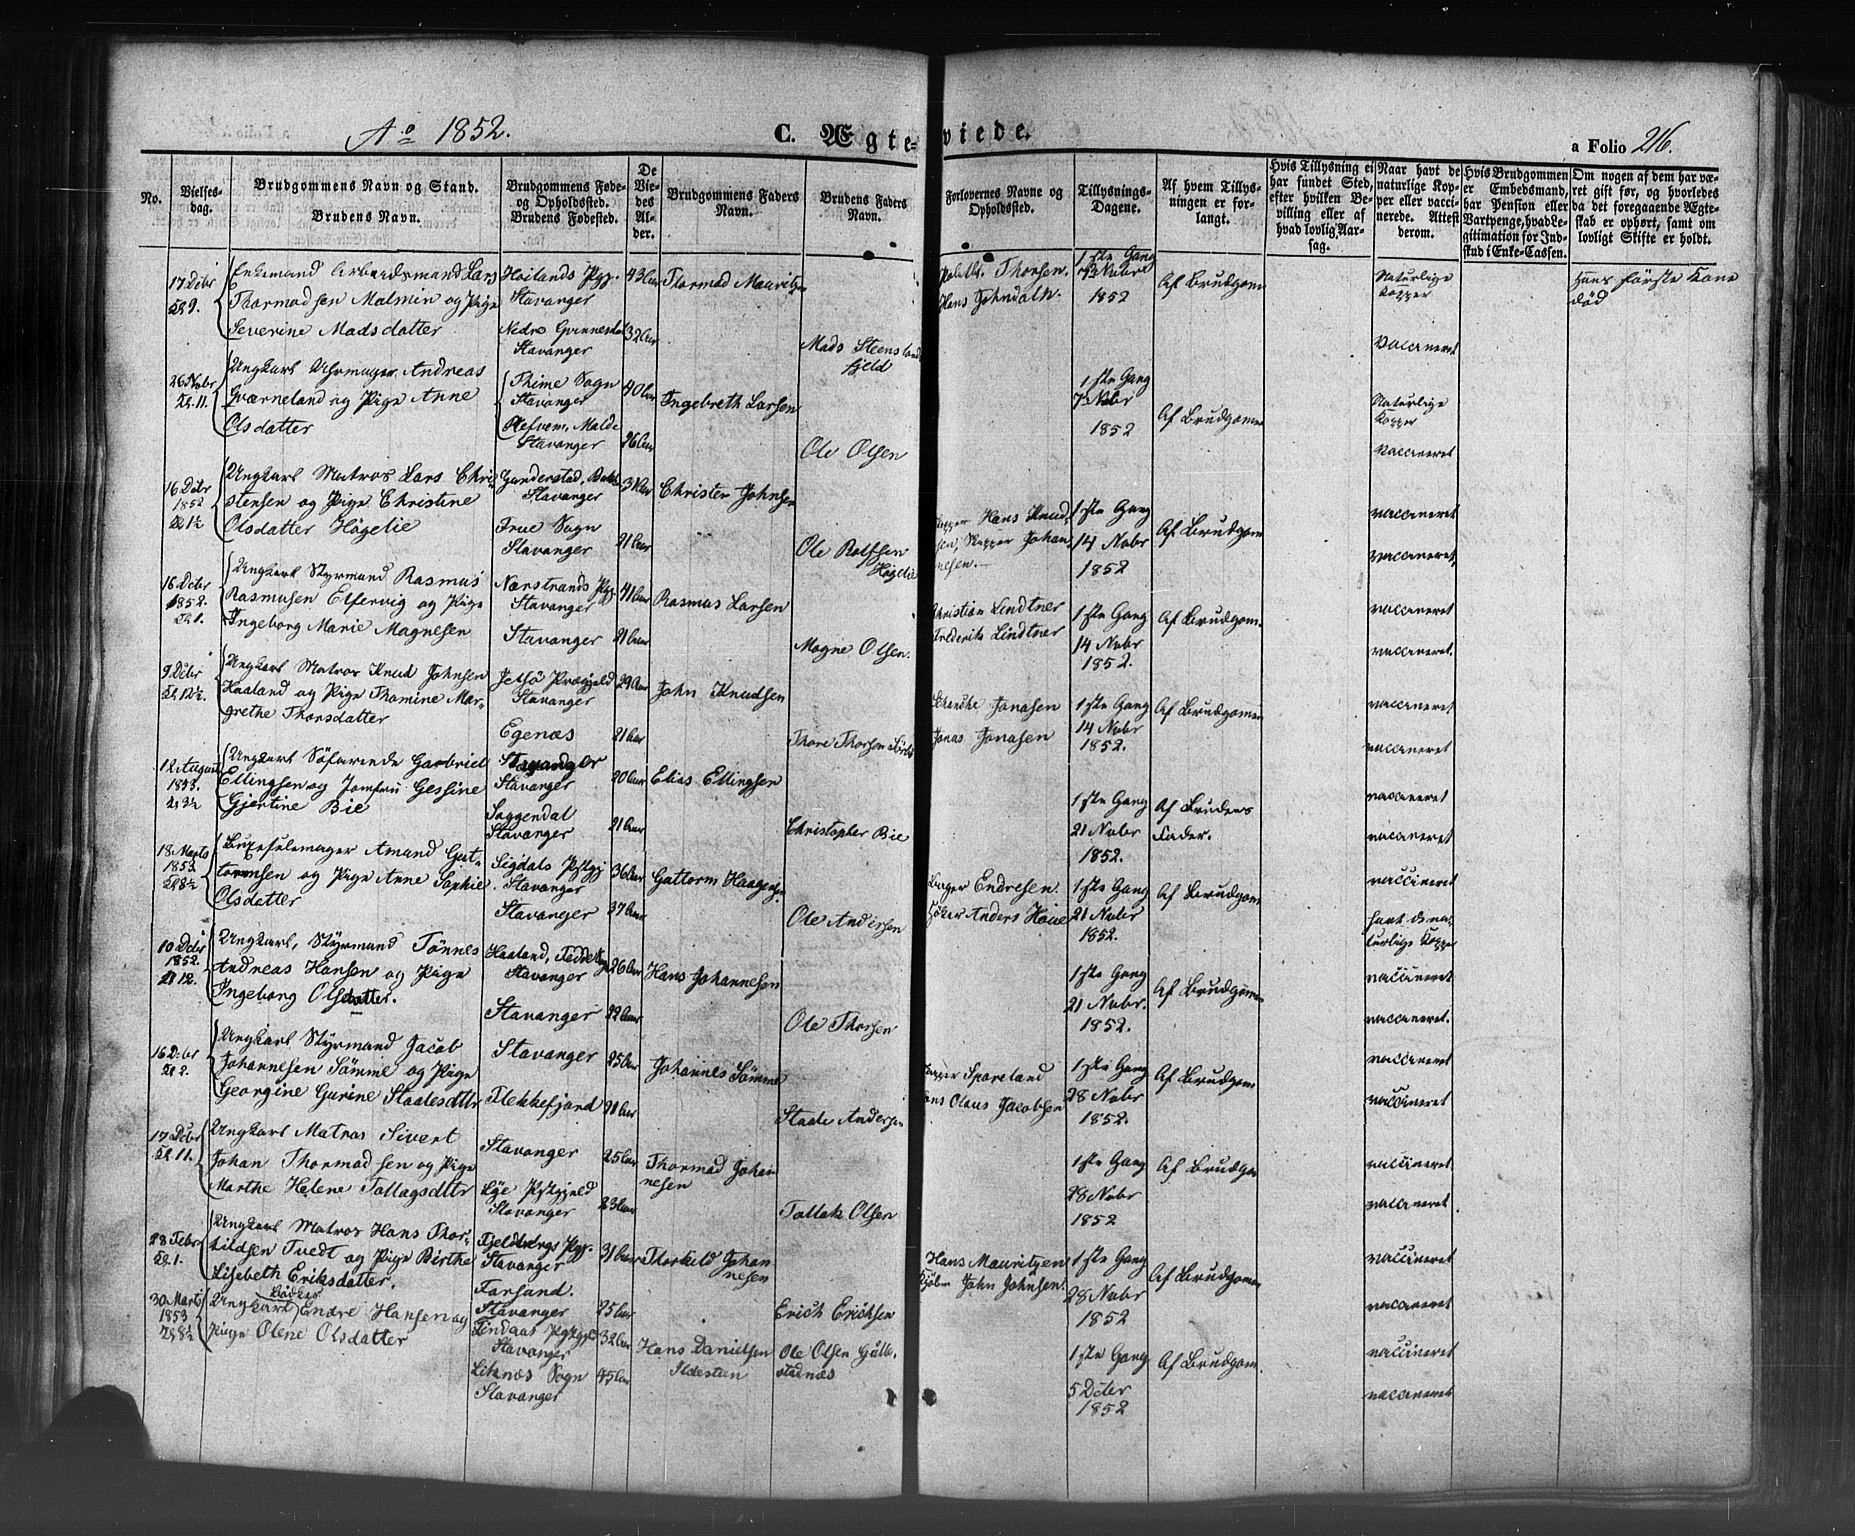 Ao 1852.
C. Ægte=viede.
a Folio 216.
No.
Vielses-dag.
Brudgommens Navn og Stand.
Brudens Navn.
Brudgommens Føde-
og Opholdssted.
Brudens Fødested.
De Vie des Al- der.
Brudgommens Faders
Navn.
Brudens Faders
Navn.
Forlovernes Navne og
Opholdssted.
Tillysnings-
Dagene.
Af hvem Tillys-
ningen er for-
langt.
Hvis Tillysning ei
har fundet Sted,
efter hvilken Be-
villing eller af
hvad lovlig Aar-
sag.
Naar havt de
naturlige Kop-
per eller vacci-
nerede. Attester
derom.
Hvis Brudgommen
er Embedsmand,
har Pension eller
Vartpenge, hvad Le-
gitimation for Ind-
skud i Enke-Cassen.
Om nogen af dem har væ-
ret gift før, og hvorledes
da det foregaaende Ægte-
skab er ophørt, samt om
lovligt Skifte er holdt.
17 Decbr
Kl 9.
Enkemand Arbeidsmand Lars
Thormodsen Malmin og Pige
Severine Madsdatter
Høilands Pgj.
Stavanger
Nedre
Stavanger
43 Aar
32 Aar
Thormod Mauritzen
Mads Steensland
fjeld
Thorsen.
Hans
1ste Gang
Novbr
1852
Af Brudgom
Naturlige
Kopper
Vaccineret
Hans første Kone
död
26 Novbr
Kl. 11.
Ungkarl Uhrmager Andreas
Qværneland og Pige Anne
Olsdatter
Thime Sogn
Stavanger
Malde
Stavanger
40 Aar
26 Aar
Ingebreth Larsen
Ole Olsen
1ste Gang
7 Novbr
1852
Af Brudgomen
Naturlige
Kopper
Vaccineret
16 Decbr
1852
Kl 1½
Ungkarl Matros Lars Chri-
stensen og Pige Christine
Olsdatter Högelie
Gunderstad,
Stavanger
Frue Sogn
Stavanger
21 Aar
Christen Johnsen
Ole Rolfsen
Högelie
Hans Knud-
sen, Skipper Johan-
nesen.
1ste Gang
14 Novbr
1852
Af Brudgom
vaccineret
vaccineret,
16 Decbr
1852.
Kl 1.
Ungkarl Styrmand Rasmus
Rasmusen Elfervig og Pige
Ingeborg Marie Magnesen
Nærstrands Pgj
Stavanger
Stavanger
41 Aar
21 Aar
Rasmus Larsen
Magne Olsen.
Christian Lindtner
Frederik Lindtner
1ste Gang
14 Novbr
1852.
Af Brudgom.
vaccineret
vaccineret.
9 Decbr
Kl. 12½.
Ungkarl Matros Knud Johnsen
Haaland og Pige Thomine Mar-
grethe Thorsdatter
Jelsø Præstgjeld
Stavanger
Egenæs
29 Aar
21 Aar
John Knudsen
Thore Thorsen
Schanche Jonasen
Jonas Jonasen
1ste Gang
14 Novbr
1852.
Af Brudgomen
vaccineret
vaccineret
12 August
1853.
Kl 3½
Ungkarl Söfarende Gabriel
Ellingsen og Jomfru Gessine
Gjertine Bie
Stavanger
Stavanger
Soggendal
Stavanger
20 Aar
21 Aar
Elias Ellingsen
Christopher Bie
1ste Gang
21 Novbr
1852.
Af Brudens
Fader.
vaccineret
vaccineret
18 Marts
1853.
Kl 8½
Amund Gut-
tormsen og Pige Anne Sophie
Olsdatter
Sigdals Pstgj
Stavanger
Stavanger
36 Aar
37 Aar
Guttorm Haagensen
Ole Andersen
Endresen.
Anders Höie
1ste Gang
21 Novbr
1852.
Af Brudgom
vaccineret
havt de na-
turlige Kopper
10 Decbr
1852.
Kl 12.
Ungkarl, Styrmand Tönnes
Andreas Hansen og Pige
Ingeborg Olsdatter.
Haaland,
Stavanger
Stavanger
26 Aar
22 Aar
Hans Johannesen
Ole Thorsen
1ste Gang
21 Novbr.
1852.
Af Brudgomen
vaccineret
vaccineret.
16 Decbr
Kl 2.
Ungkarl Styrmand Jacob
Johannesen Sömme og Pige
Georgine Gurine Staalesdttr
Stavanger
Flekkefjord
25 Aar
21 Aar
Johannes Sömme
Staale Andersen
Sporeland
Olaus Jacobsen
1ste Gang
28 Novbr
1852.
Af Brudgom
vaccineret
vaccineret
17 Decbr
Kl. 11.
Ungkarl Matros Sivert
Johan Thormodsen og Pige
Marthe Helene Tollagsdttr
Stavanger
Lye Pstgjeld
Stavanger
25 Aar
23 Aar
Thormod Johan
nesen
Tollak Olsen
1ste Gang
28 Novbr
1852
Af Brudgom
vaccineret
vaccineret
28 Febr
Kl. 1.
Ungkarl Matros Hans Thor-
kildsen Tvedt og Pige Birthe
Lisebeth Eriksdatter.
Fjeldbergs Pgj.
Stavanger
Forsand.
Stavanger
31 Aar
25 Aar
Thorkild Johan
nesen
Erich Erichsen
Hans Mauritzen
John Johnsen.
1ste Gang
28 Novbr
1852
Af Brudgomen
vaccineret
vaccineret
30 Marts
1853
Kl 8½
Ungkarl Bödker Endre Hansen og
Pige Olene Olsdatter
Findaas Pstgj
Stavanger
Liknæs Sogn
Stavanger
32 Aar
45 Aar
Hans Danielsen
Ole Olsen
1ste Gang
5 Decbr
1852
Af Brudgom.
vaccineret
vaccineret